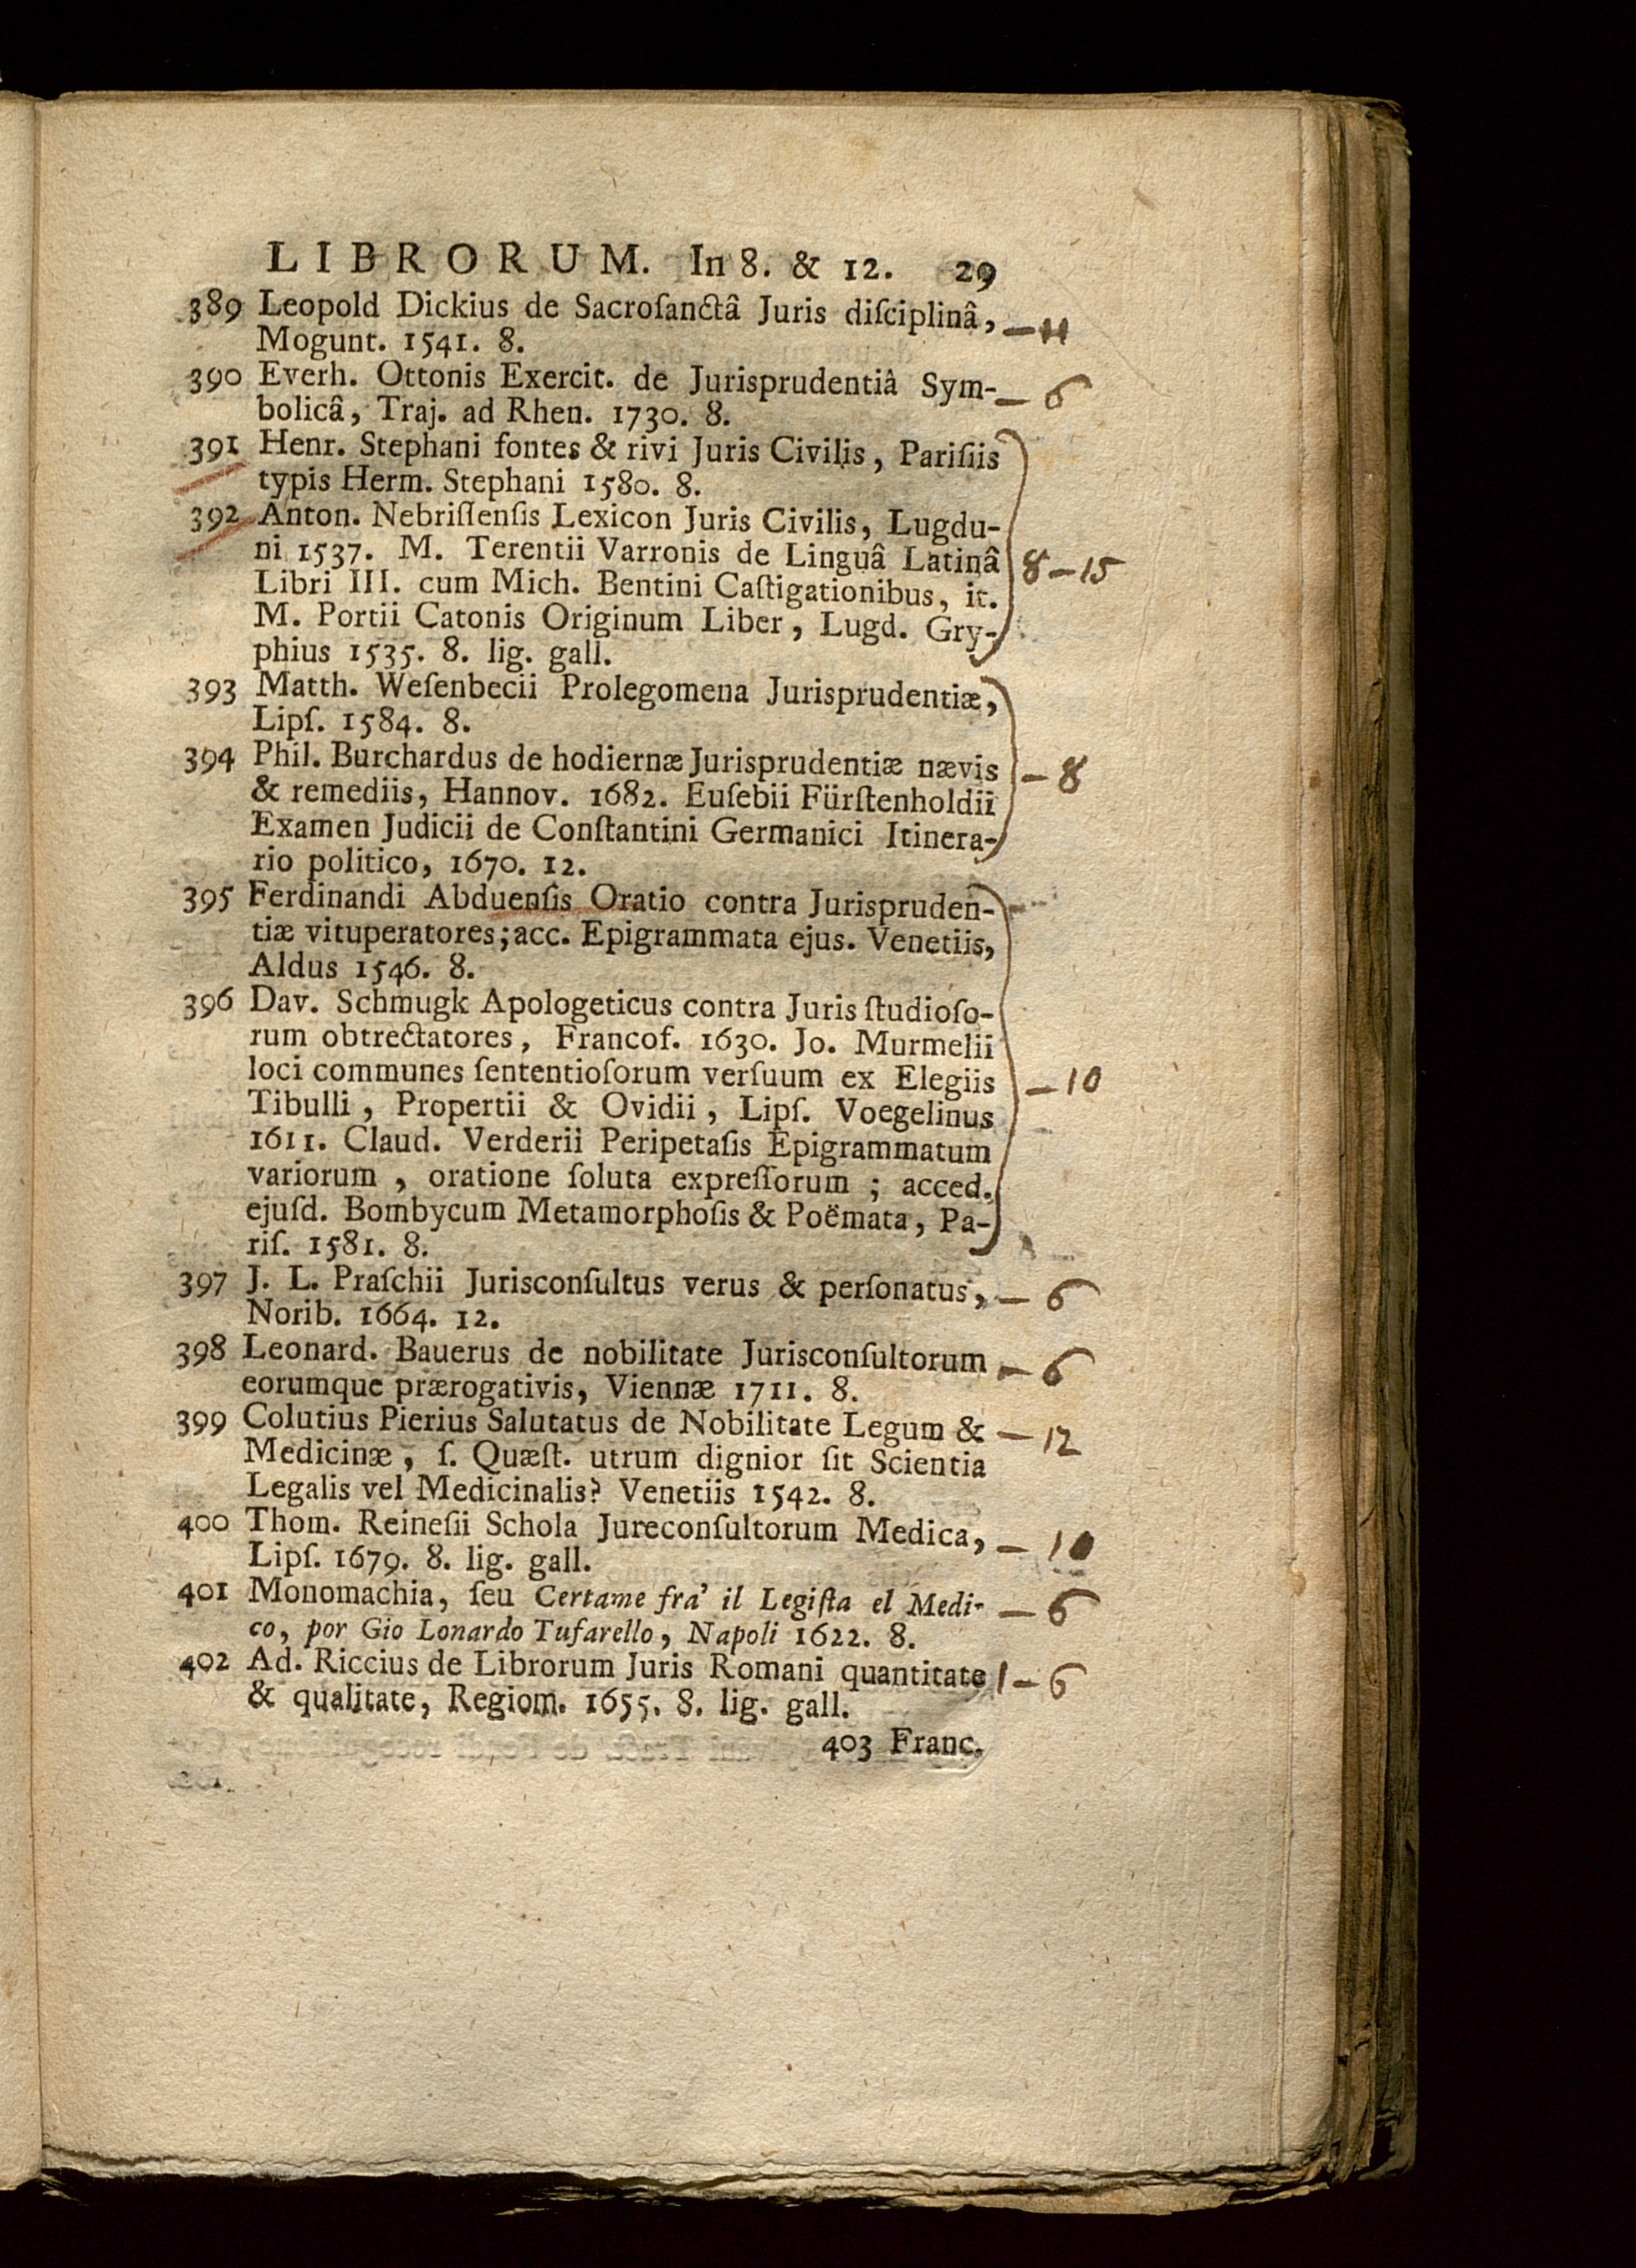 LIBRORUM. In 8. & 12. 29
389 Leopold Dickius de Sacroſanctâ Juris diſciplinâ, — 11
Mogunt. 1541. 8.
390 Everh. Ottonis Exercit. de Jurisprudentiâ Sym- — 6
bolicâ, Traj. ad Rhen. 1730. 8.
391 Henr. Stephani fontes & rivi Juris Civilis, Pariſiis
typis Herm. Stephani 1580. 8.
392 Anton. Nebriſſenſis Lexicon Juris Civilis, Lugdu-
ni 1537. M. Terentii Varronis de Linguâ Latinâ 8—15
Libri III. cum Mich. Bentini Caſtigationibus, it.
M. Portii Catonis Originum Liber, Lugd. Gry-
phius 1535. 8. lig. gall.
393 Matth. Weſenbecii Prolegomena Jurisprudentiæ,
Lipſ. 1584. 8.
394 Phil. Burchardus de hodiernæ Jurisprudentiæ nævis — 8
& remediis, Hannov. 1682. Euſebii Fürſtenholdii
Examen Judicii de Conſtantini Germanici Itinera-
rio politico, 1670. 12.
395 Ferdinandi Abduenſis Oratio contra Jurispruden-
tiæ vituperatores; acc. Epigrammata ejus. Venetiis,
Aldus 1546. 8.
396 Dav. Schmugk Apologeticus contra Juris ſtudioſo-
rum obtrectatores, Francof. 1630. Jo. Murmelii
loci communes ſententioſorum verſuum ex Elegiis — 10
Tibulli, Propertii & Ovidii, Lipſ. Voegelinus
1611. Claud. Verderii Peripetaſis Epigrammatum
variorum, oratione ſoluta expreſſorum; acced.
ejuſd. Bombycum Metamorphoſis & Poëmata, Pa-
riſ. 1581. 8.
397 J. L. Praſchii Jurisconſultus verus & perſonatus, — 6
Norib. 1664. 12.
398 Leonard. Bauerus de nobilitate Jurisconſultorum — 6
eorumque prærogativis, Viennæ 1711. 8.
399 Colutius Pierius Salutatus de Nobilitate Legum & — 12
Medicinæ, ſ. Quæſt. utrum dignior ſit Scientia
Legalis vel Medicinalis? Venetiis 1542. 8.
400 Thom. Reineſii Schola Jureconſultorum Medica, — 10
Lipſ. 1679. 8. lig. gall.
401 Monomachia, ſeu Certame fra' il Legiſta el Medi- — 6
co, por Gio Lonardo Tufarello, Napoli 1622. 8.
402 Ad. Riccius de Librorum Juris Romani quantitate 1—6
& qualitate, Regiom. 1655. 8. lig. gall.
403 Franc.